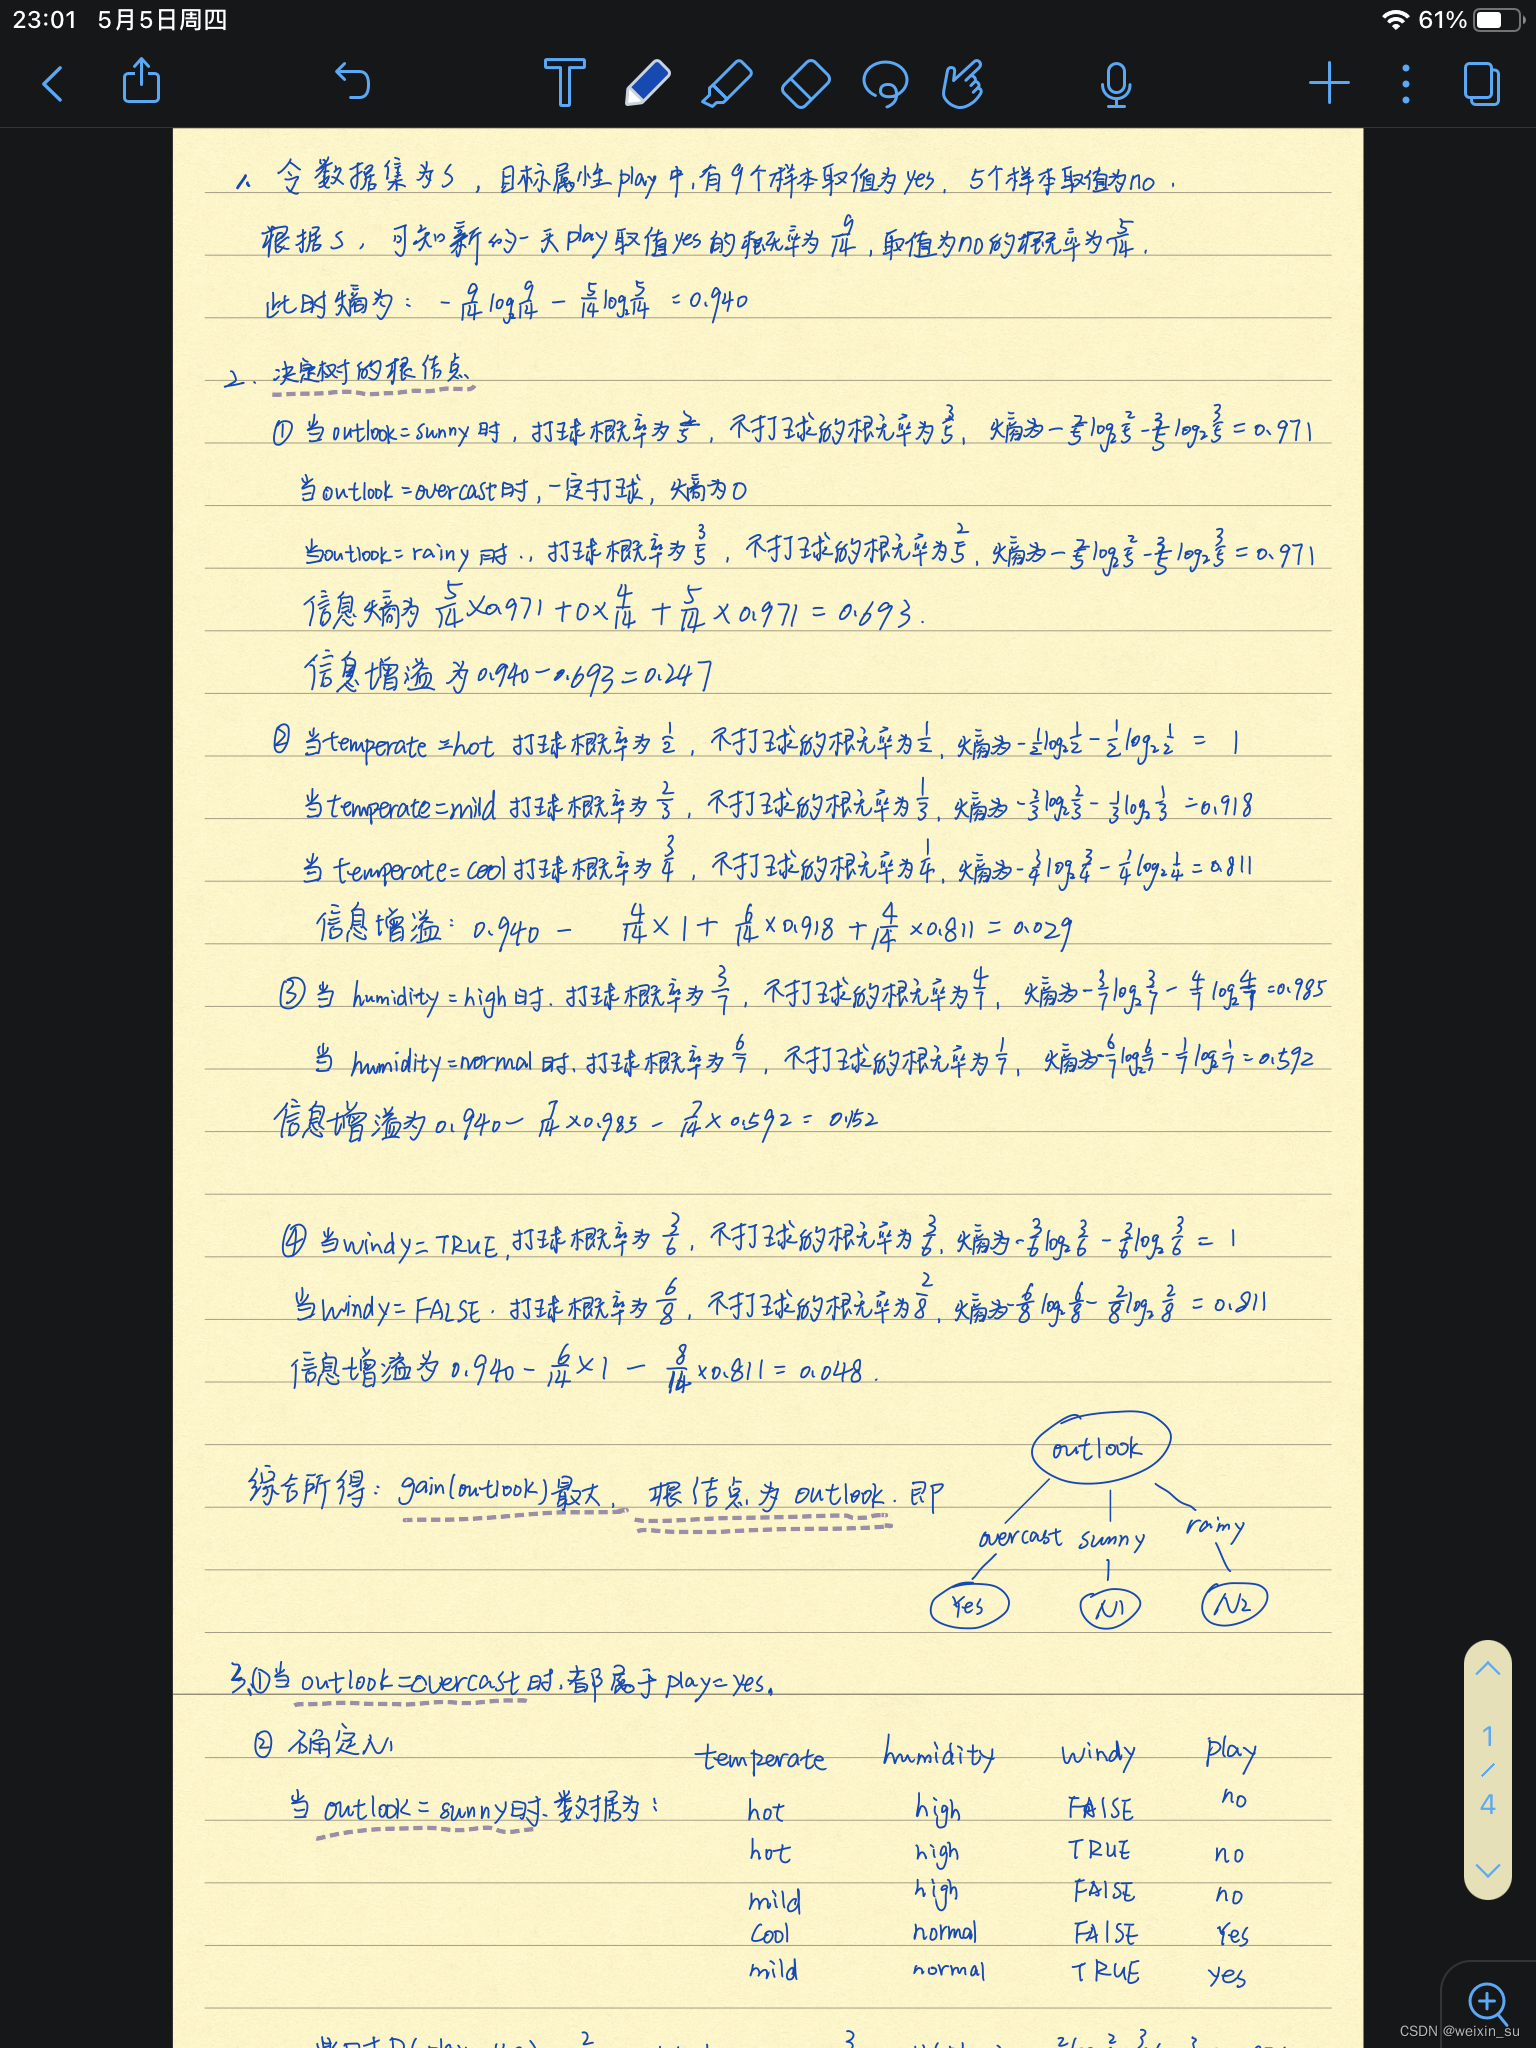 23:01 5月5日周四 61%
1. 令数据集为S，目标属性play中，有9个样本取值为yes，5个样本取值为no.
根据S，可知新的一天play取值yes的概率为9/14，取值为no的概率为5/14.
此时熵为：-9/14 log₂ 9/14 - 5/14 log₂ 5/14 = 0.940
2. 决定树的根结点
① 当outlook=sunny时，打球概率为2/5，不打球的概率为3/5，熵为-2/5 log₂ 2/5 - 3/5 log₂ 3/5 = 0.971
当outlook=overcast时，一定打球，熵为0
当outlook=rainy时，打球概率为3/5，不打球的概率为2/5，熵为-2/5 log₂ 2/5 - 3/5 log₂ 3/5 = 0.971
信息熵为 5/14×0.971+0×4/14+5/14×0.971=0.693.
信息增溢为0.940-0.693=0.247
② 当temperate=hot 打球概率为1/2，不打球的概率为1/2，熵为-1/2 log₂ 1/2 - 1/2 log₂ 1/2 = 1
当temperate=mild 打球概率为2/3，不打球的概率为1/3，熵为-2/3 log₂ 2/3 - 1/3 log₂ 1/3 = 0.918
当temperate=cool 打球概率为3/4，不打球的概率为1/4，熵为-3/4 log₂ 3/4 - 1/4 log₂ 1/4 = 0.811
信息增溢：0.940 - 4/14×1+6/14×0.918+4/14×0.811=0.029
③ 当 humidity=high时. 打球概率为3/7，不打球的概率为4/7，熵为-3/7 log₂ 3/7 - 4/7 log₂ 4/7 = 0.985
当 humidity=normal时. 打球概率为6/7，不打球的概率为1/7，熵为-6/7 log₂ 6/7 - 1/7 log₂ 1/7 = 0.592
信息增溢为0.940-7/14×0.985-7/14×0.592=0.152
④ 当windy=TRUE，打球概率为3/6，不打球的概率为3/6，熵为-3/6 log₂ 3/6 - 3/6 log₂ 3/6 = 1
当windy=FALSE. 打球概率为6/8，不打球的概率为2/8，熵为-6/8 log₂ 6/8 - 2/8 log₂ 2/8 = 0.811
信息增溢为0.940-6/14×1-8/14×0.811=0.048.
综合所得：gain(outlook)最大，根结点为outlook. 即
outlook
overcast sunny rainy
Yes N1 N2
3.①当outlook=overcast时，都属于play=yes.
② 确定N1
当outlook=sunny时. 数据为：
temperate humidity windy play
hot high FALSE no
hot high TRUE no
mild high FALSE no
cool normal FALSE Yes
mild normal TRUE yes
1/4
CSDN @weixin_su